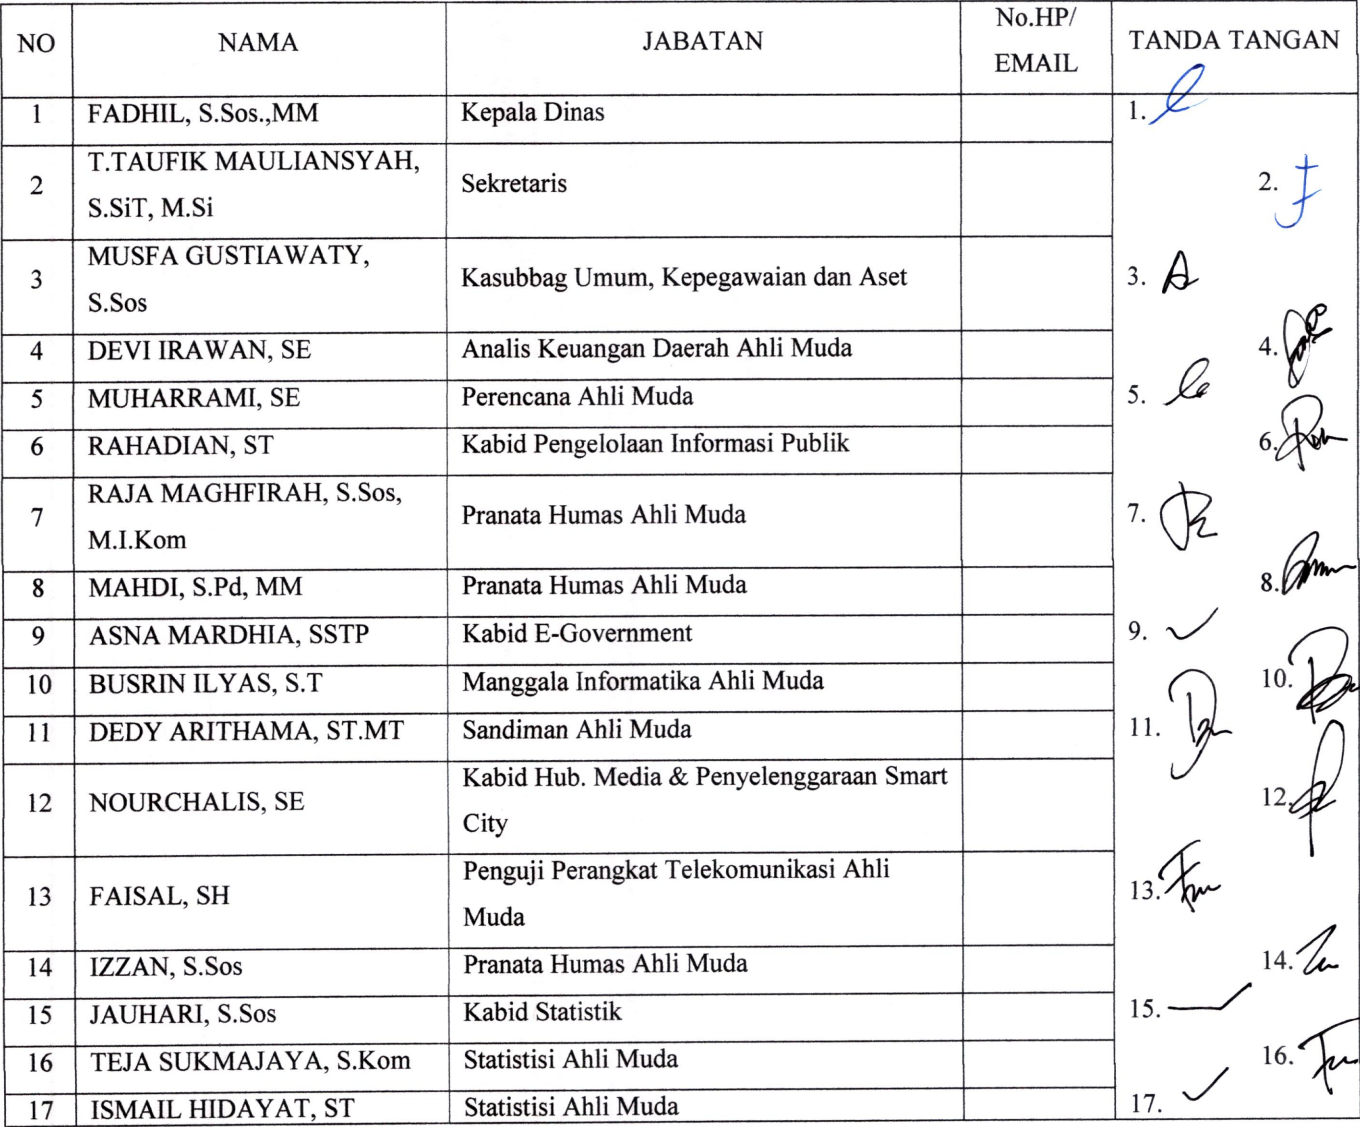 NO NAMA JABATAN No.HP/ EMAIL TANDA TANGAN
1 FADHIL, S.Sos.,MM Kepala Dinas 1.
2 T.TAUFIK MAULIANSYAH, Sekretaris 2.
S.SiT, M.Si
3 MUSFA GUSTIAWATY, Kasubbag Umum, Kepegawaian dan Aset 3.
S.Sos
4 DEVI IRAWAN, SE Analis Keuangan Daerah Ahli Muda 4.
5 MUHARRAMI, SE Perencana Ahli Muda 5.
6 RAHADIAN, ST Kabid Pengelolaan Informasi Publik 6.
7 RAJA MAGHFIRAH, S.Sos, Pranata Humas Ahli Muda 7.
M.I.Kom
8 MAHDI, S.Pd, MM Pranata Humas Ahli Muda 8.
9 ASNA MARDHIA, SSTP Kabid E-Government 9.
10 BUSRIN ILYAS, S.T Manggala Informatika Ahli Muda 10.
11 DEDY ARITHAMA, ST.MT Sandiman Ahli Muda 11.
12 NOURCHALIS, SE Kabid Hub. Media & Penyelenggaraan Smart 12.
City
13 FAISAL, SH Penguji Perangkat Telekomunikasi Ahli 13.
Muda
14 IZZAN, S.Sos Pranata Humas Ahli Muda 14.
15 JAUHARI, S.Sos Kabid Statistik 15.
16 TEJA SUKMAJAYA, S.Kom Statistisi Ahli Muda 16.
17 ISMAIL HIDAYAT, ST Statistisi Ahli Muda 17.